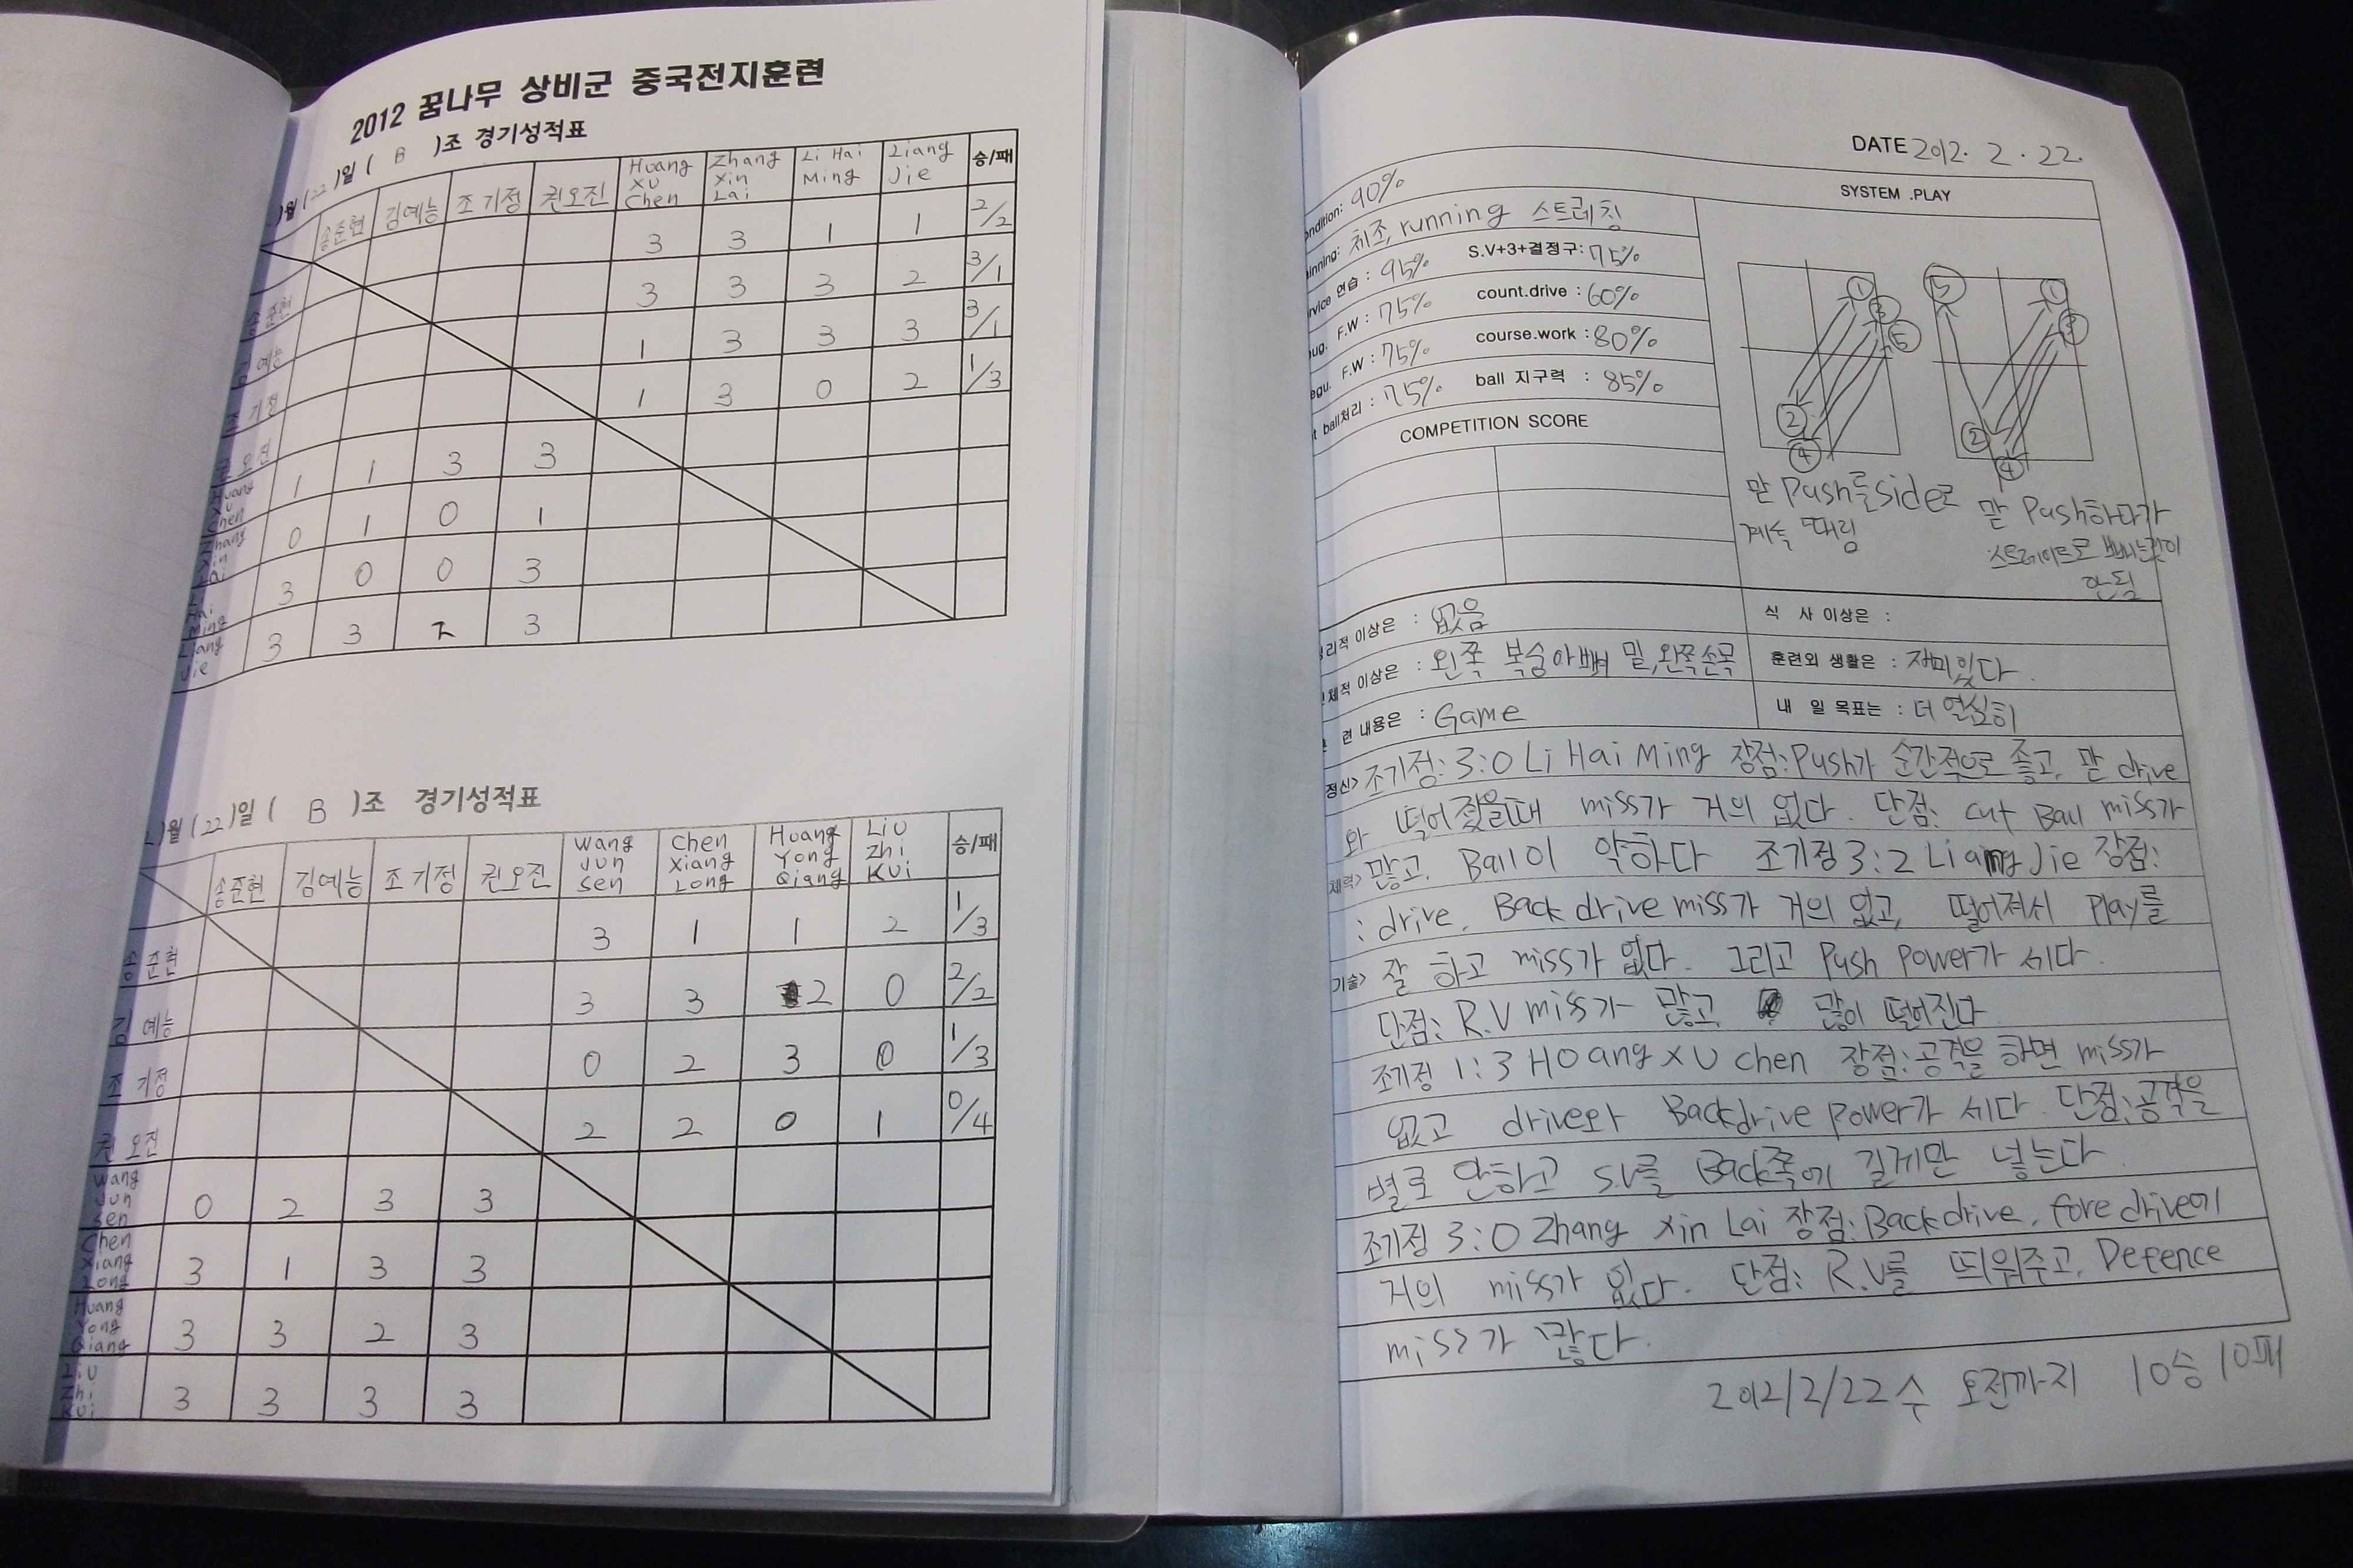 2012 꿈나무 상비군 중국전지훈련
)월 (22)일 ( B )조 경기성적표
송준현 김예능 조기정 권오진 Huang Xu Chen Zhang Xin Lai Li Hai Ming Liang Jie 승/패
송준현 3 3 1 1 2/2
김예능 3 3 3 2 3/1
조기정 1 3 3 3 3/1
권오진 1 3 0 2 1/3
Huang Xu Chen 1 1 3 3
Zhang Xin Lai 0 1 0 1
Li Hai Ming 3 0 0 3
Liang Jie 3 3 2 3
2)월 (22)일 ( B )조 경기성적표
송준현 김예능 조기정 권오진 Wang Jun Sen Chen Xiang Long Huang Yong Qiang Liu Zhi Kui 승/패
송준현 3 1 1 2 1/3
김예능 3 3 2 0 2/2
조기정 0 2 3 0 1/3
권오진 2 2 0 1 0/4
Wang Jun Sen 0 2 3 3
Chen Xiang Long 3 1 3 3
Huang Yong Qiang 3 3 2 3
Liu Zhi Kui 3 3 3 3
DATE 2012. 2. 22.
ndition: 90%
SYSTEM .PLAY
inning: 체조, running 스트레칭
rvice 연습 : 95% S.V+3+결정구: 75%
ug. F.W : 75% count.drive : 60%
egu. F.W : 75% course.work : 80%
t ball처리 : 75% ball 지구력 : 85%
COMPETITION SCORE
① ③ ⑤ ② ④
⑤ ① ③ ② ④
맏 Push를 side로
계속 때림
맏 Push하다가
스트레이트로 빼는것이
안됨
리적 이상은 : 없음
식 사 이상은 :
체적 이상은 : 왼쪽 복숭아뼈 밑, 왼쪽손목
훈련외 생활은 : 재미있다.
련 내용은 : Game
내 일 목표는 : 더 열심히
정신> 조기정: 3:0 Li Hai Ming 장점: Push가 순간적으로 좋고, 맏 drive
와 떨어졌을때 miss가 거의 없다. 단점: cut Ball miss가
체력> 많고, Ball이 약하다 조기정 3:2 Liang Jie 장점:
: drive, Back drive miss가 거의 없고, 떨어져서 Play를
기술> 잘 하고 miss가 없다. 그리고 Push Power가 세다.
단점: R.V miss가 많고 많이 떨어진다
조기정 1:3 HOang XU chen 장점: 공격을 하면 miss가
없고 drive와 Backdrive power가 세다. 단점: 공격을
별로 안하고 S.V를 Back쪽에 길게만 넣는다.
조기정 3:0 Zhang Xin Lai 장점: Backdrive, fore drive에
거의 miss가 없다. 단점: R.V를 띄워주고, Defence
miss가 많다.
2012/2/22 수 오전까지 10승 10패